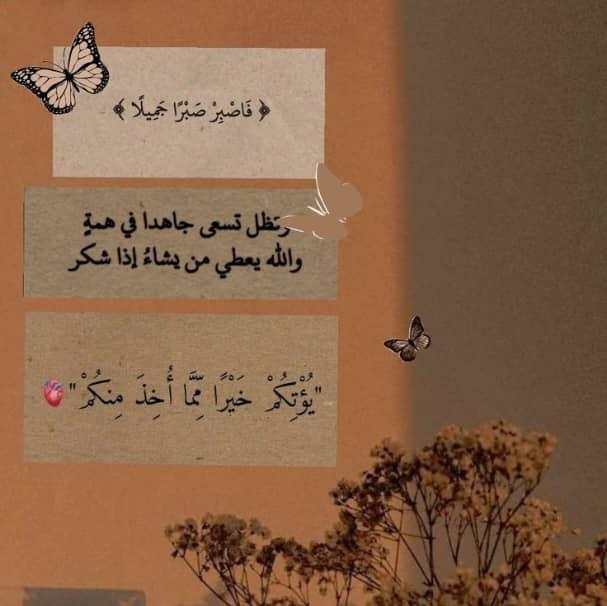 ﴿ فَاصْبِرْ صَبْرًا جَمِيلًا ﴾
وتظل تسعى جاهدا في همةٍ
والله يعطي من يشاءُ إذا شكر
"يُؤْتِكُمْ خَيْرًا مِّمَّا أُخِذَ مِنكُمْ"🫀